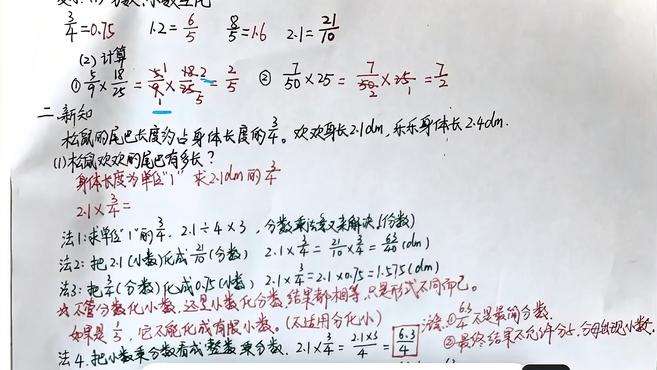 3/4=0.75 1.2=6/5 8/5=1.6 2.1=21/10
(2) 计算
① 5/9×18/25=5/9×18/25=2/5 ② 7/50×25=7/50×25=7/2
二、新知
松鼠的尾巴长度约占身体长度的3/4。欢欢身长2.1dm,乐乐身体长2.4dm.
(1)松鼠欢欢的尾巴有多长?
身体长度为单位"1" 求2.1dm的3/4
2.1×3/4=
法1:求单位"1"的3/4. 2.1÷4×3,分数乘法意义来解决(分数)
法2:把2.1(小数)化成21/10(分数) 2.1×3/4=21/10×3/4=63/40(dm)
法3:把3/4(分数)化成0.75(小数) 2.1×3/4=2.1×0.75=1.575(dm)
不管分数化小数,还是小数化分数,结果都相等,只是形式不同而已。
如果是1/3,它不能化成有限小数。(不适用分化小)
注意:①6.3/4不是最简分数.
②最终结果不允许分子,分母出现小数.
法4.把小数乘分数看成整数乘分数. 2.1×3/4=2.1×3/4=6.3/4